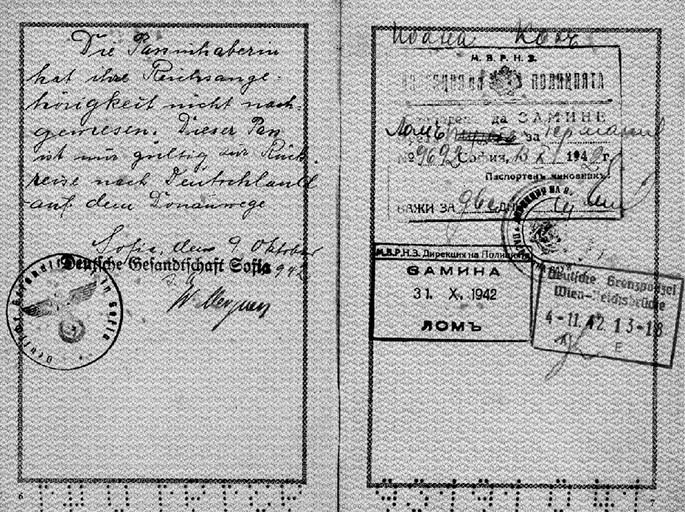 Die Passinhaberin
hat ihre Reichsange-
hörigkeit nicht nach-
gewiesen. Dieser Pass
ist nur gültig zur Rück-
reise nach Deutschland
auf dem Donauwege
Sofia, den 9. Oktober
1942
Deutsche Gesandtschaft Sofia
6
М.В.Р.Н.З.
ПОЛИЦИЯТА
да ЗАМИНЕ
Ломъ за Германия
№ 9692 София,
Паспортенъ чиновникъ:
ВАЖИ ЗА
М.В.Р.Н.З. Дирекция на Полицията
ЗАМИНА
31. X. 1942
ЛОМЪ
Deutsche Grenzpolizei
Wien-Reichsbrücke
4-11.42 13-18
E
7